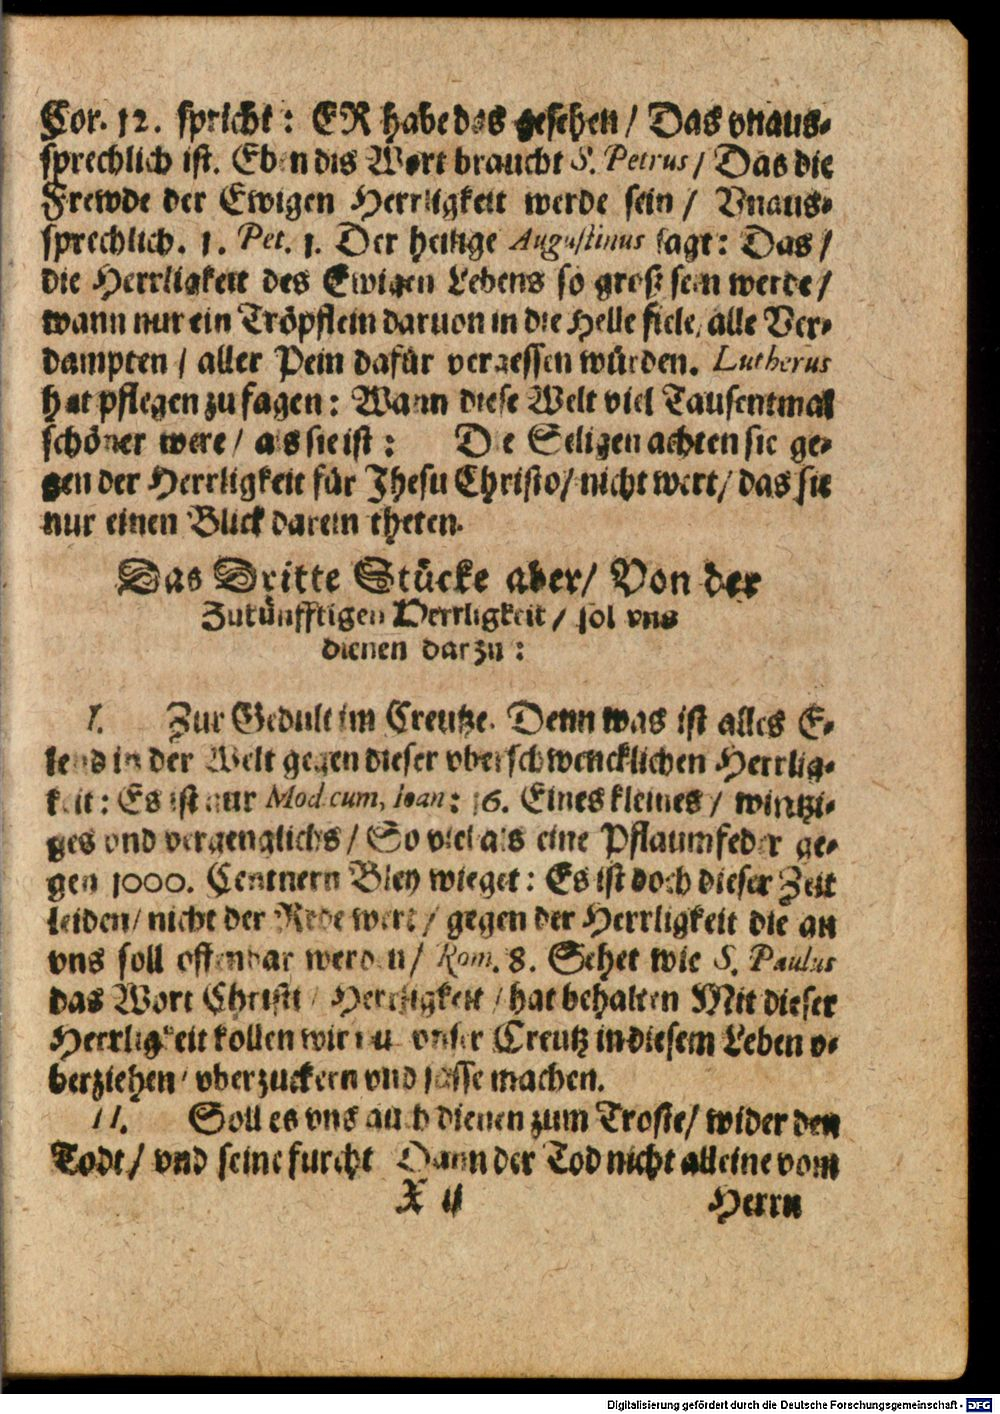 Cor. 12. spricht: ER habe das gesehen / Das vnaus-
sprechlich ist. Eben dis Wort braucht S. Petrus / Das die
Frewde der Ewigen Herrligkeit werde sein / Vnaus-
sprechlich. 1. Pet. 1. Der heilige Augustinus sagt: Das /
die Herrligkeit des Ewigen Lebens so groß sein werde /
wann nur ein Tröpflein daruon in die Helle fiele, alle Ver-
dampten / aller Pein dafür vergessen würden. Lutherus
hat pflegen zu sagen: Wann diese Welt viel Tausentmal
schöner were / als sie ist: Die Seligen achten sie ge-
gen der Herrligkeit für Jhesu Christo / nicht wert / das sie
nur einen Blick darein theten.
Das Dritte Stücke aber / Von der
Zukünfftigen Herrligkeit / sol vns
dienen darzu:
I. Zur Gedult im Creutze. Denn was ist alles E-
lend in der Welt gegen dieser vberschwencklichen Herrlig-
keit: Es ist nur Modicum, Ioan: 16. Eines kleines / wintzi-
ges vnd vergenglichs / So viel als eine Pflaumfeder ge-
gen 1000. Centnern Bley wieget: Es ist doch dieser Zeit
leiden / nicht der Rede wert / gegen der Herrligkeit die an
vns soll offenbar werden / Rom. 8. Sehet wie S. Paulus
das Wort Christi / Herrligkeit / hat behalten Mit dieser
Herrligkeit kollen wir nu vnser Creutz in diesem Leben v-
berziehen / vberzuckern vnd süsse machen.
II. Soll es vns auch dienen zum Troste / wider den
Todt / vnd seine furcht Dann der Tod nicht alleine vom
X ij Herrn
Digitalisierung gefördert durch die Deutsche Forschungsgemeinschaft - DFG